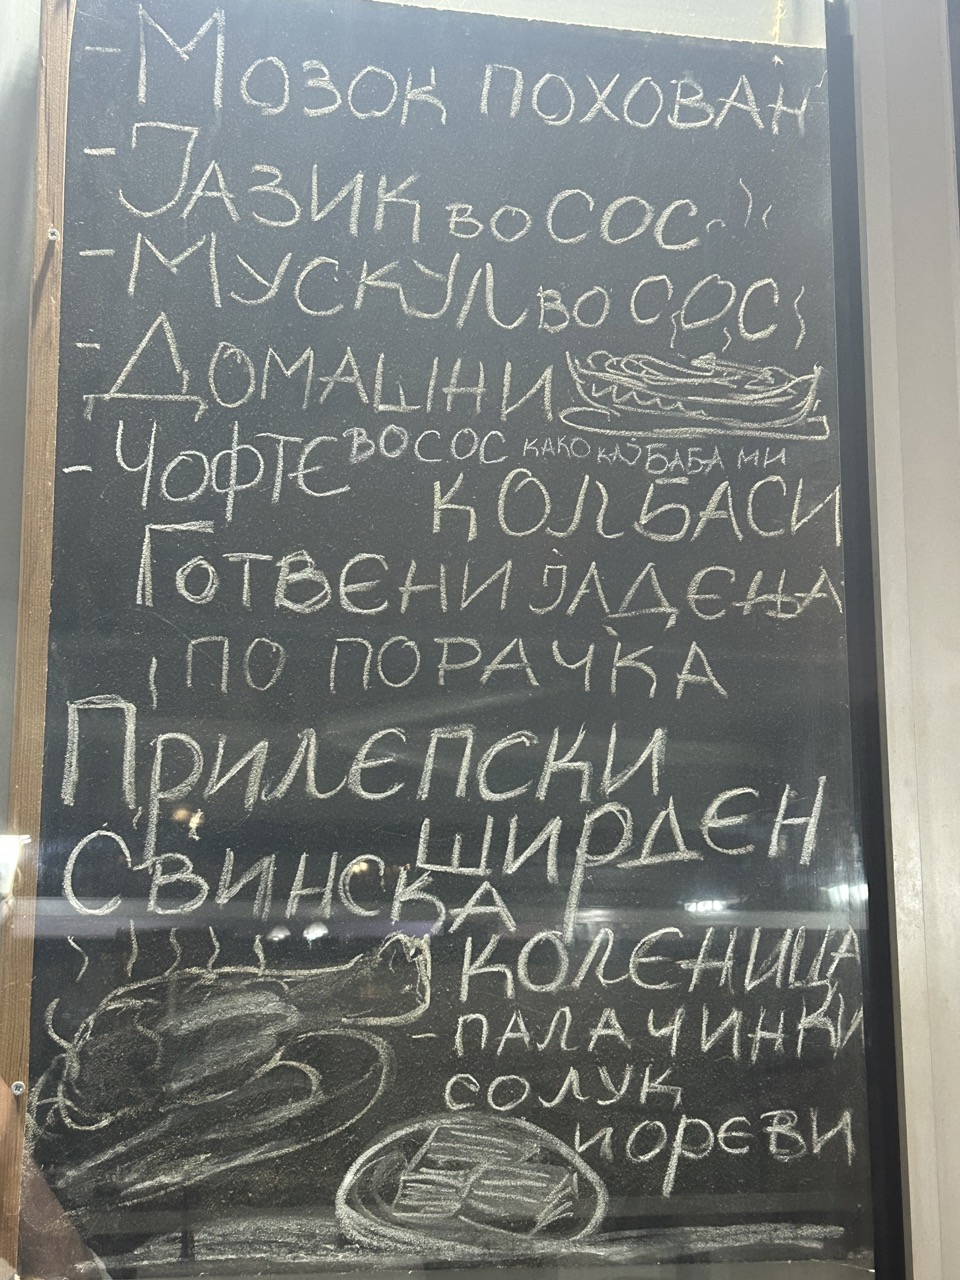 - Мозок похован
- Јазик во сос
- Мускул во сос
- Домашни
колбаси
- Чофте во сос како кај баба ми
Готвени јадења
по порачка
Прилепски
ширден
Свинска
коленица
- палачинки
со лук
и ореви